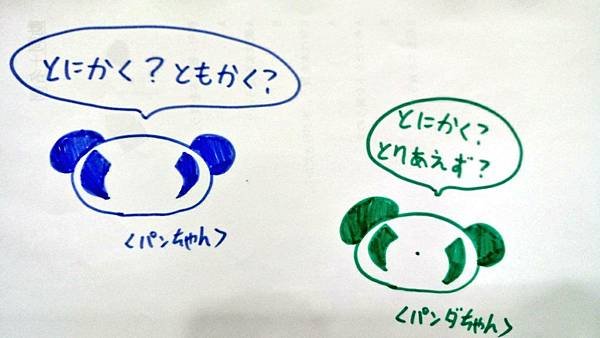 とにかく？ともかく？
〈パンちゃん〉
とにかく？
とりあえず？
〈パンダちゃん〉